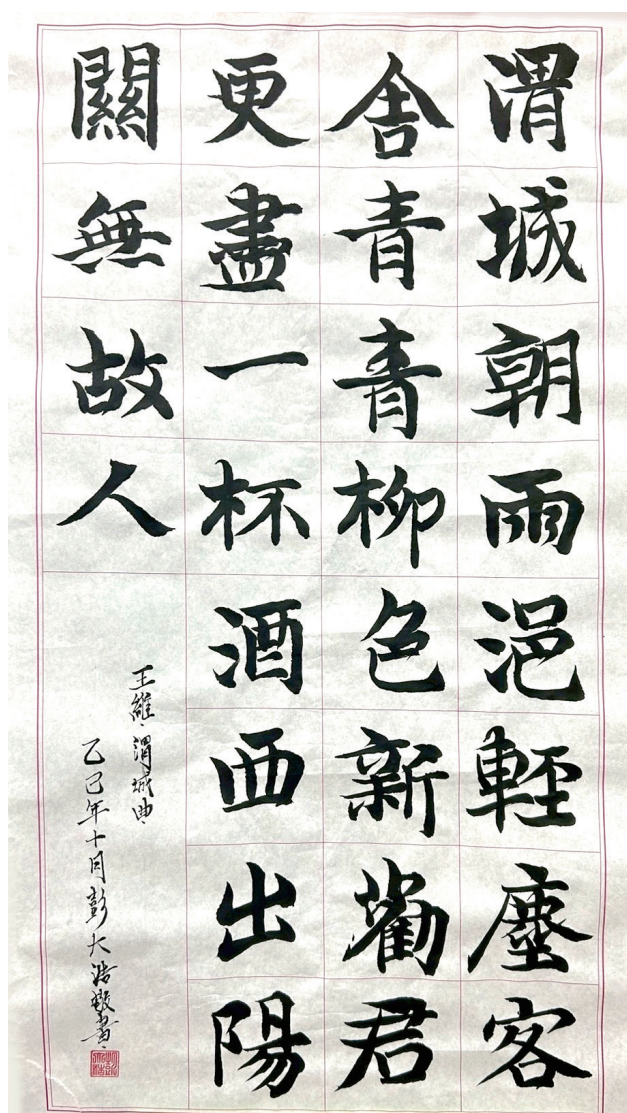 渭城朝雨浥輕塵客
舍青青柳色新勸君
更盡一杯酒西出陽
關無故人
王維渭城曲
乙巳年十月彭大浩敬書